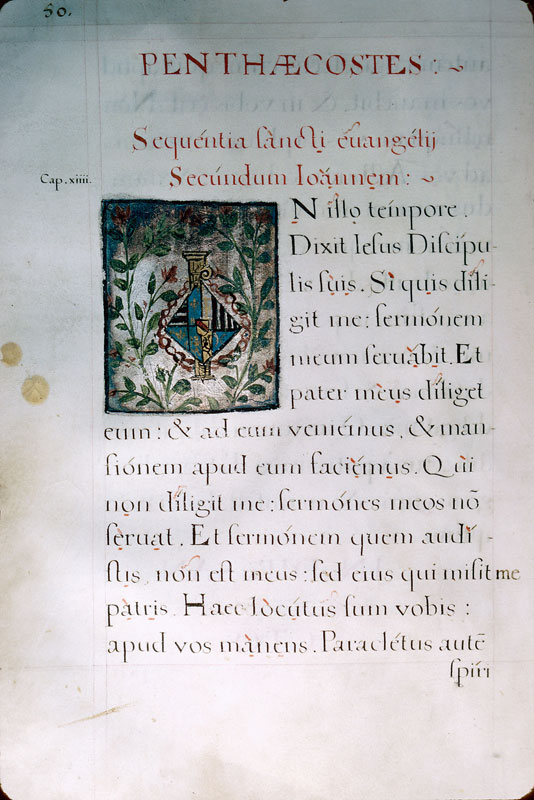 80.
PENTHÆCOSTES : ~
Sequéntia sáncti euangélij
Cap. xiiii.
Secúndum Ioánnem : ~
IN illo témpore :
Dixit Iesus Discípu-
lis suis. Sì quis díli-
git me : sermónem
meum seruábit. Et
pater mèus díliget
eum : & ad eum venièmus, & man-
siónem apud eum facièmus. Quì
non díligit me : sermónes meos nõ
sèruat. Et sermónem quem audí-
stis, nón est meus : sed eius qui misit me
pàtris. Haec locútus sum vobis :
apud vos mànens. Paraclétus autẽ
spíri